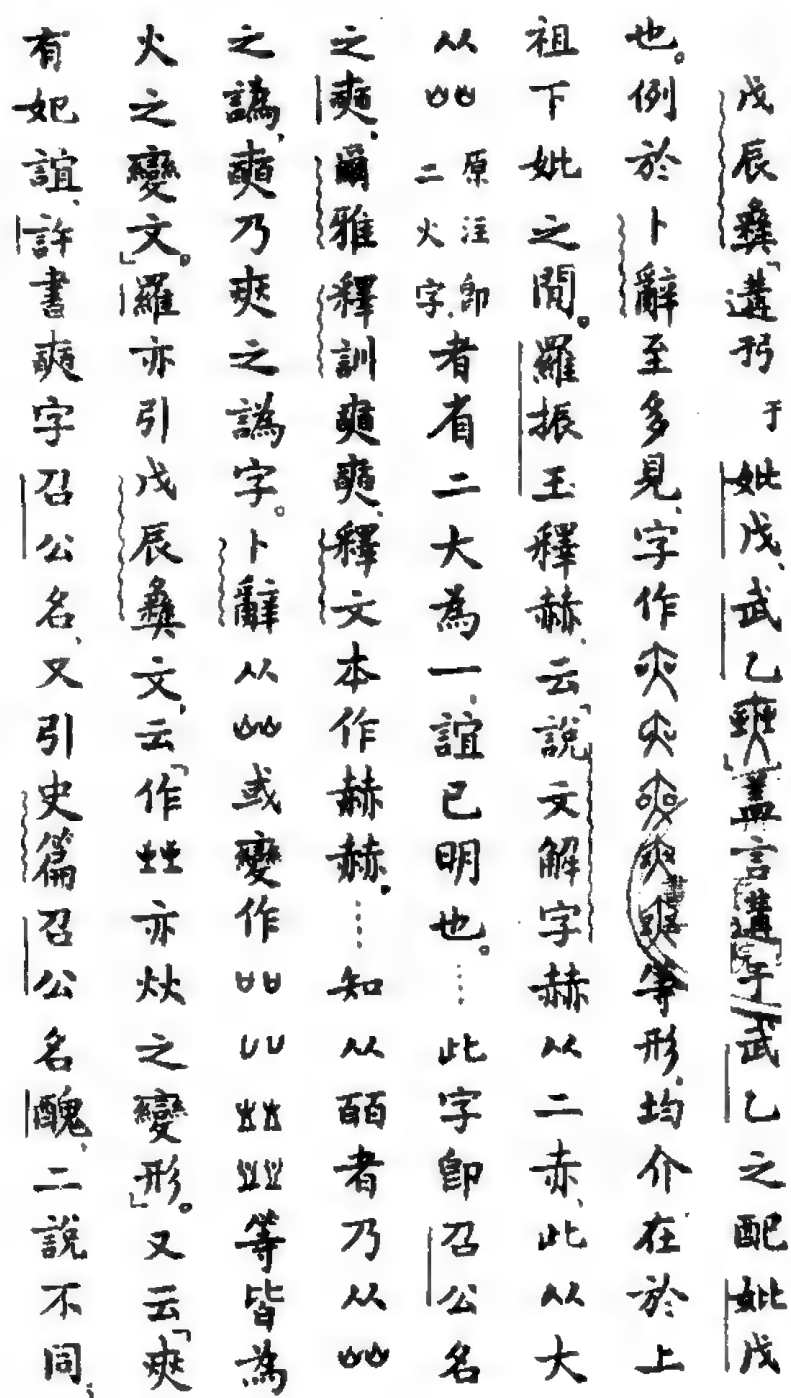 戊辰彝「遘 于妣戊、武乙奭」蓋言遘于武乙之配妣戊
也。例於卜辭至多見、字作 等形、均介在於上
祖下妣之閒。羅振玉釋赫、云「說文解字赫从二赤、此从大
从 原注卽二火字、者省二大為一、誼已明也。……此字卽召公名
之奭、爾雅釋訓奭奭、釋文本作赫赫。……知从皕者乃从
之譌、奭乃 之譌字。卜辭从 或變作 等皆為
火之變文。」羅亦引戊辰彝文、云「作 亦炏之變形。」又云「
有妃誼、許書奭字召公名、又引史篇召公名醜、二說不同、